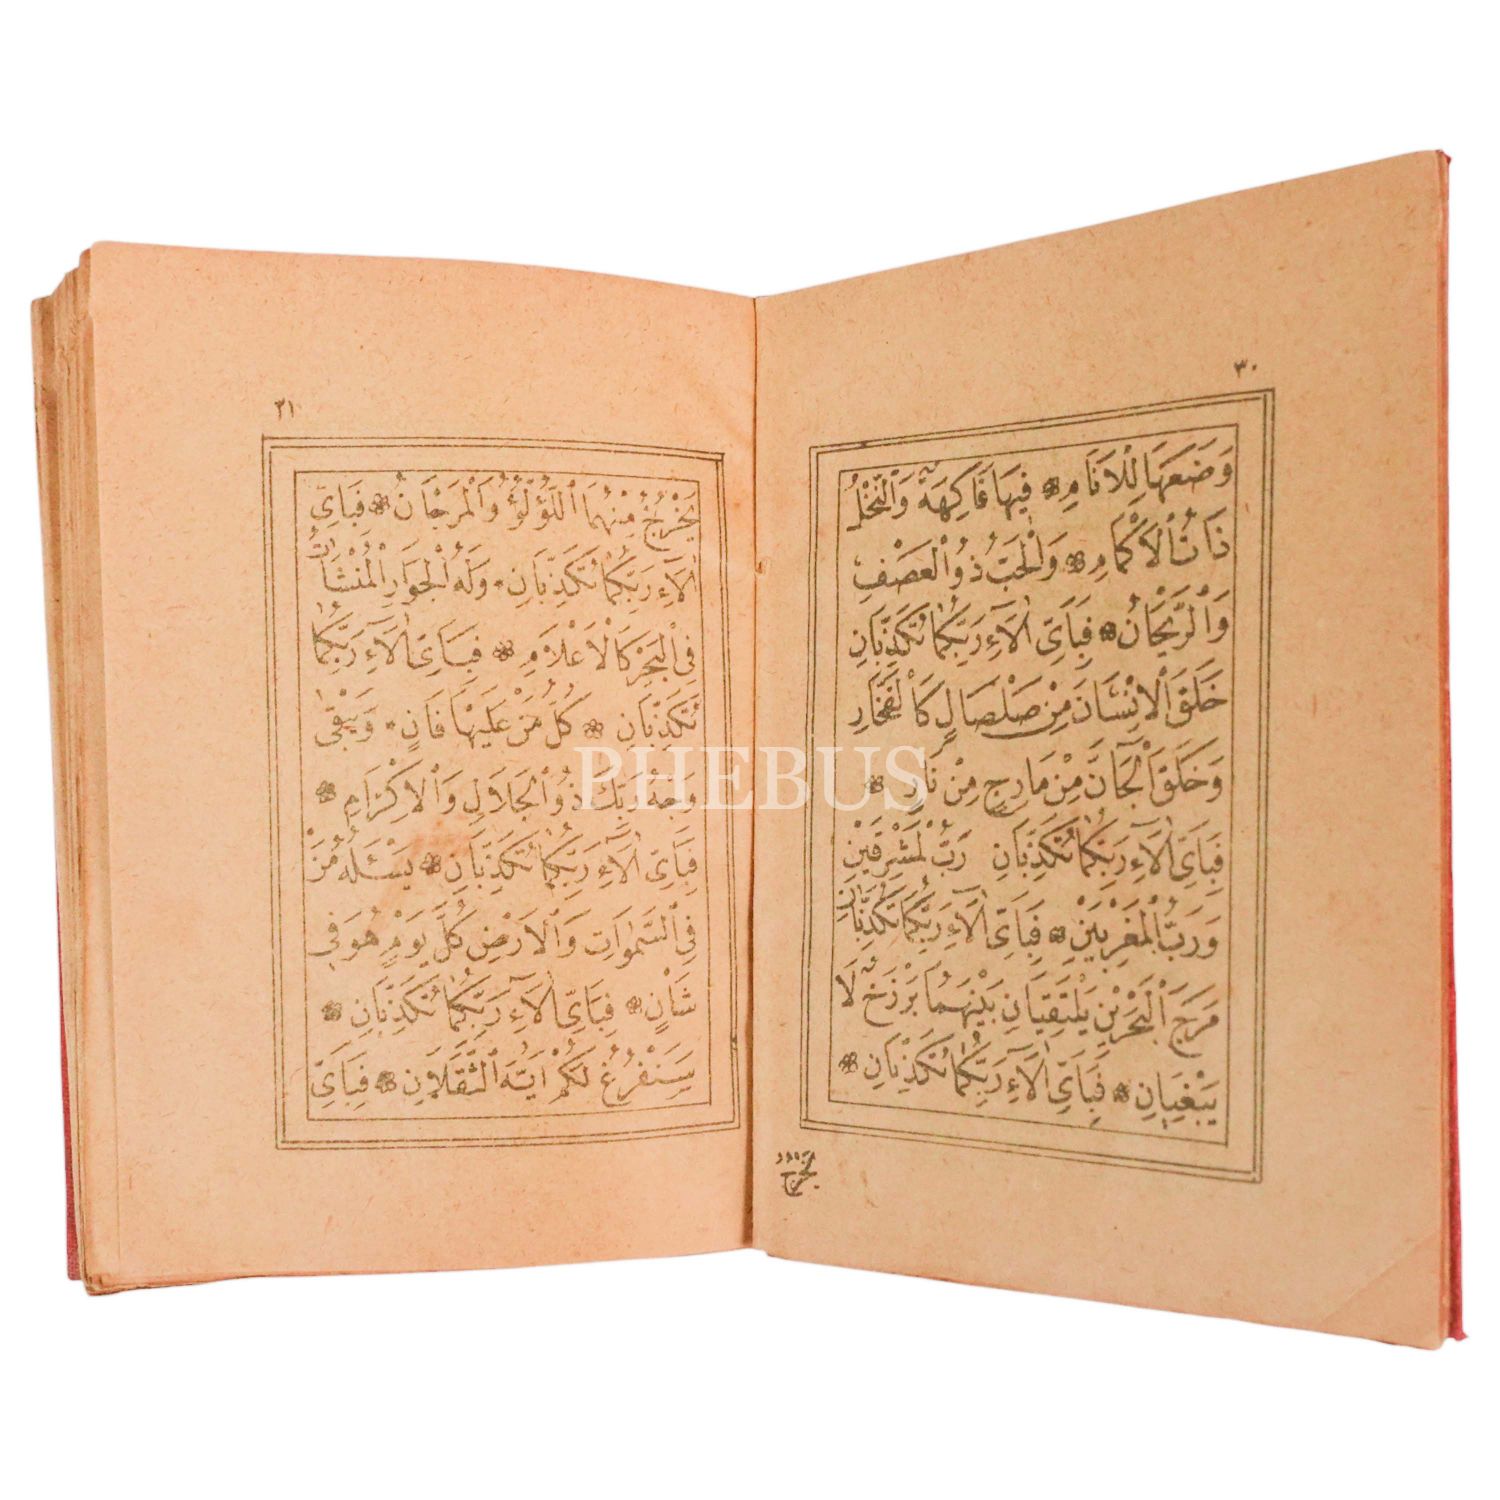 ٣٠
وَضَعَهَا لِلْاَنَامِ ❀ فِيهَا فَاكِهَةٌ وَالنَّخْلُ
ذَاتُ الْاَكْمَامِ ❀ وَالْحَبُّ ذُو الْعَصْفِ
وَالرَّيْحَانُ ❀ فَبِاَىِّ اٰلَٓاءِ رَبِّكُمَا تُكَذِّبَانِ
خَلَقَ الْاِنْسَانَ مِنْ صَلْصَالٍ كَالْفَخَّارِ
وَخَلَقَ الْجَٓانَّ مِنْ مَارِجٍ مِنْ نَارٍ ❀
فَبِاَىِّ اٰلَٓاءِ رَبِّكُمَا تُكَذِّبَانِ رَبُّ الْمَشْرِقَيْنِ
وَرَبُّ الْمَغْرِبَيْنِ ❀ فَبِاَىِّ اٰلَٓاءِ رَبِّكُمَا تُكَذِّبَانِ
مَرَجَ الْبَحْرَيْنِ يَلْتَقِيَانِ بَيْنَهُمَا بَرْزَخٌ لَا
يَبْغِيَانِ ❀ فَبِاَىِّ اٰلَٓاءِ رَبِّكُمَا تُكَذِّبَانِ ❀
يَخْرُجُ
٣١
يَخْرُجُ مِنْهُمَا اللُّؤْلُؤُ وَالْمَرْجَانُ ❀ فَبِاَىِّ
اٰلَٓاءِ رَبِّكُمَا تُكَذِّبَانِ ❀ وَلَهُ الْجَوَارِ الْمُنْشَاٰتُ
فِى الْبَحْرِ كَالْاَعْلَامِ ❀ فَبِاَىِّ اٰلَٓاءِ رَبِّكُمَا
تُكَذِّبَانِ ❀ كُلُّ مَنْ عَلَيْهَا فَانٍ ❀ وَيَبْقٰى
وَجْهُ رَبِّكَ ذُو الْجَلَالِ وَالْاِكْرَامِ ❀
فَبِاَىِّ اٰلَٓاءِ رَبِّكُمَا تُكَذِّبَانِ ❀ يَسْئَلُهُ مَنْ
فِى السَّمٰوَاتِ وَالْاَرْضِ كُلَّ يَوْمٍ هُوَ فِى
شَاْنٍ ❀ فَبِاَىِّ اٰلَٓاءِ رَبِّكُمَا تُكَذِّبَانِ ❀
سَنَفْرُغُ لَكُمْ اَيُّهَ الثَّقَلَانِ ❀ فَبِاَىِّ
PHEBUS